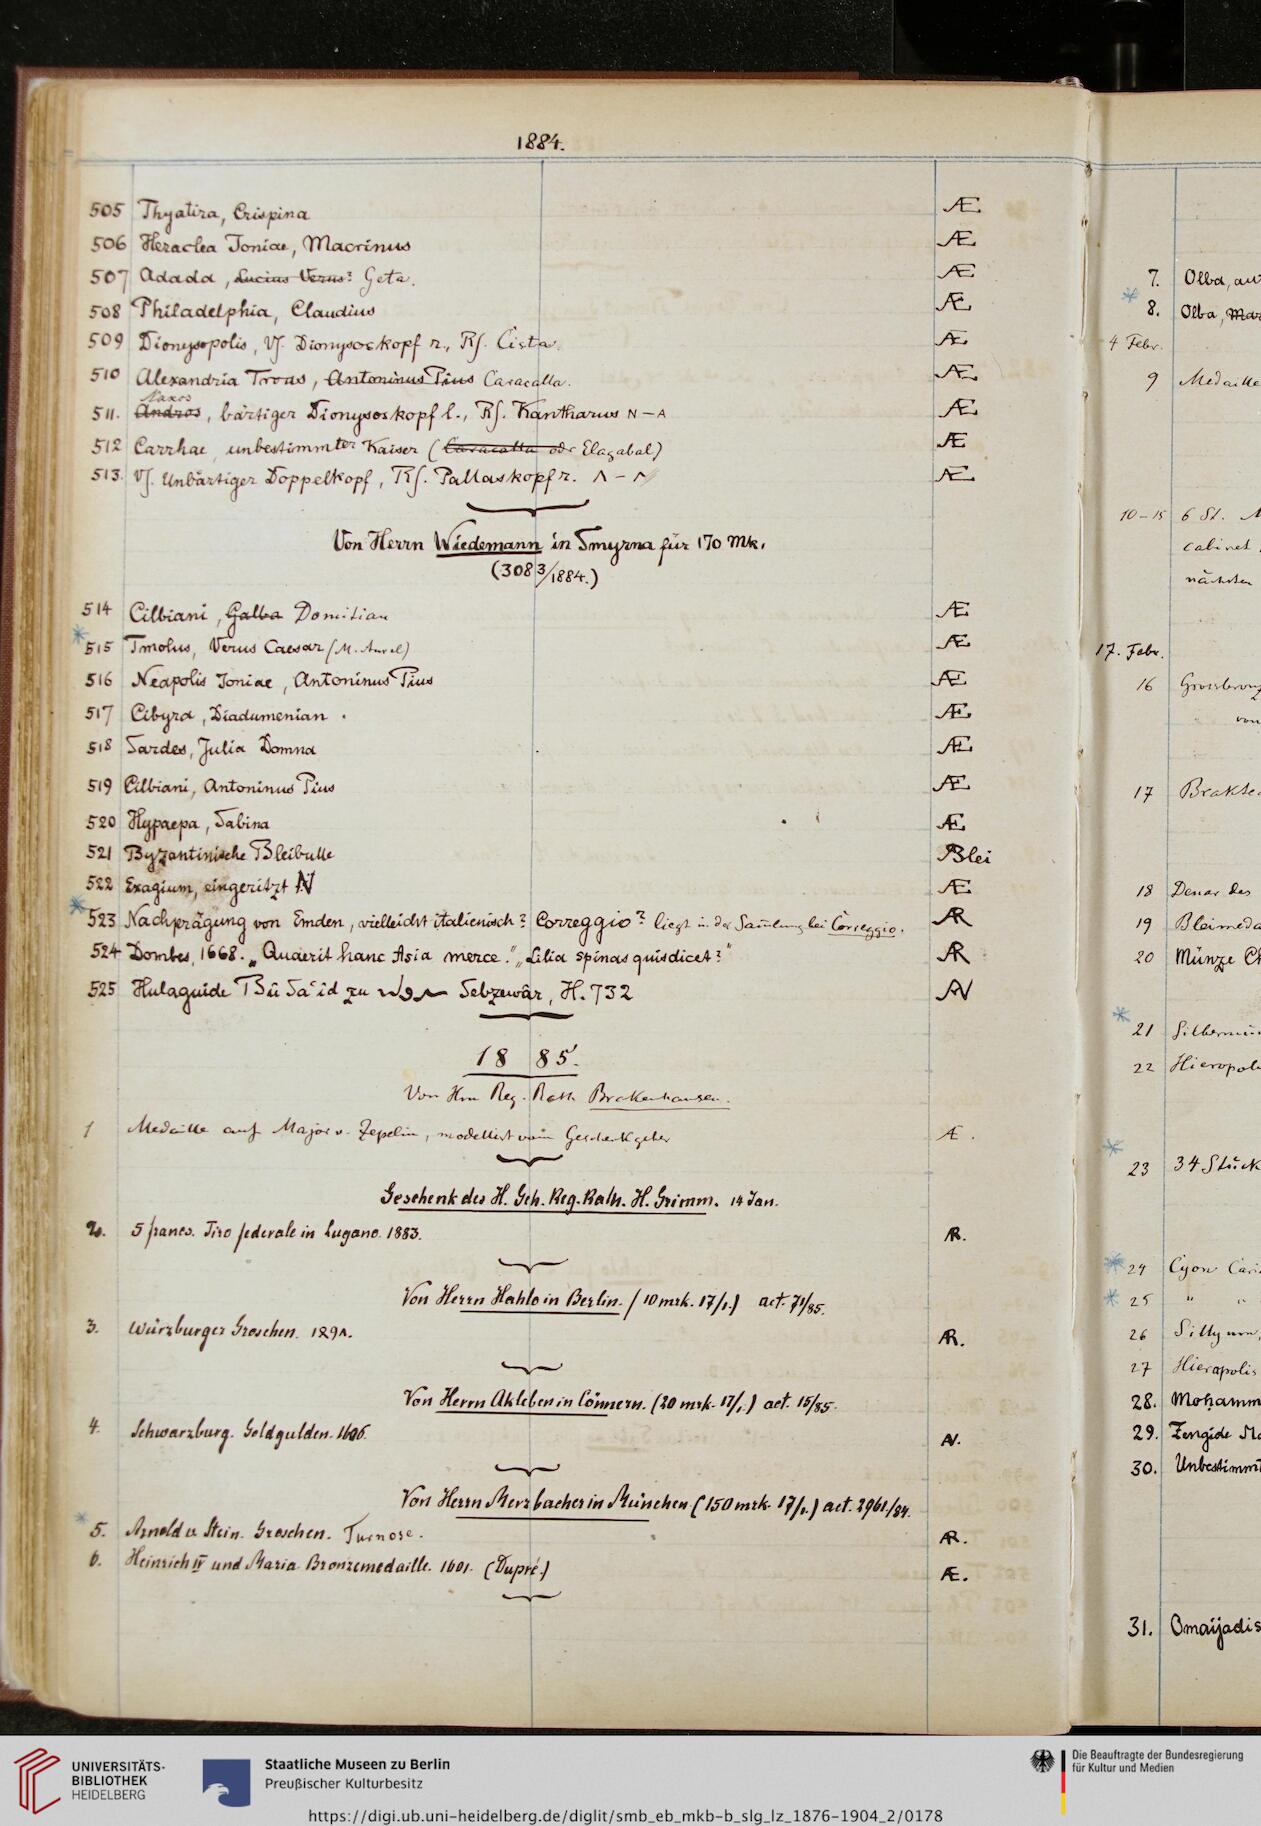 1884.
505 Thyatira, Crispina Æ
506 Heraclea Joniae, Macrinus Æ
507 Adada, Lucius Verus? Geta. Æ
508 Philadelphia, Claudius Æ
509 Dionysopolis, Vs. Dionysoskopf r., Rs. Cista. Æ
510 Alexandria Troas, Antoninus Pius Caracalla. Æ
Naxos
511. Andros, bärtiger Dionysoskopf l., Rs. Kantharus N – A Æ
512 Carrhae, unbestimmter Kaiser (Caracalla oder Elagabal) Æ
513. Vs. Unbärtiger Doppelkopf, Rs. Pallaskopf r. Æ
Von Herrn Wiedemann in Smyrna für 170 Mk.
(3083/1884.)
514 Cilbiani, Galba Domitian Æ
* 515 Tmolus, Verus Caesar (M. Aurel) Æ
516 Neapolis Joniae, Antoninus Pius Æ
517 Cibyra, Diadumenian. Æ
518 Sardes, Julia Domna Æ
519 Cilbiani, Antoninus Pius Æ
520 Hypaepa, Sabina Æ
521 Byzantinische Bleibulle Blei
522 Exagium, eingeritzt N Æ
* 523 Nachprägung von Emden, vielleicht italienisch? Correggio? liegt in der Samlung bei Correggio. AR
524 Dombes, 1668. „Quaerit hanc Asia merce." „Lilia spinas quis dicet?" AR
525 Hulaguide Bû Sa'îd zu Sebzewâr, H. 732 AV
1885.
Von Hrn Reg. Rath Brakenhausen.
1 Medaille auf Major v. Zepelin, modellirt vom Geschenkgeber Æ.
Geschenk des H. Geh. Reg. Rath. H. Grimm. 14 Jan.
2. 5 francs. Tiro federale in Lugano. 1883. AR.
Von Herrn Hahlo in Berlin. (10 mrk. 17/1.) act. 71/85.
3. Würzburger Groschen. AR.
Von Herrn Akleben in Cönnern. (20 mrk. 17/1.) act. 15/85.
4. Schwarzburg. Goldgulden. 1606. AV.
Von Herrn Merzbacher in München (150 mrk. 17/1.) act. 2961/84.
* 5. Arnold v. Stein. Groschen. Turnose. AR.
6. Heinrich IV und Maria. Bronzemedaille. 1601. (Dupré.) Æ.
7. Olba, au
* 8. Olba, Mar
4 Febr.
9 Medaille
10–15 6 St. M
cabinet
nächsten
17. Febr.
16 Grossbronz
von
17 Braktea
18 Denar des
19 Bleimeda
20 Münze Ch
* 21 Silbermün
22 Hieropol
* 23 34 Stück
* 24 Cyon Cari
* 25 " "
26 Sillyum,
27 Hierapolis
28. Mohamm
29. Zengide Ma
30. Unbestimmt
31. Omaijadis
UNIVERSITÄTS-
BIBLIOTHEK
HEIDELBERG
Staatliche Museen zu Berlin
Preußischer Kulturbesitz
Die Beauftragte der Bundesregierung
für Kultur und Medien
https://digi.ub.uni-heidelberg.de/diglit/smb_eb_mkb-b_slg_lz_1876-1904_2/0178